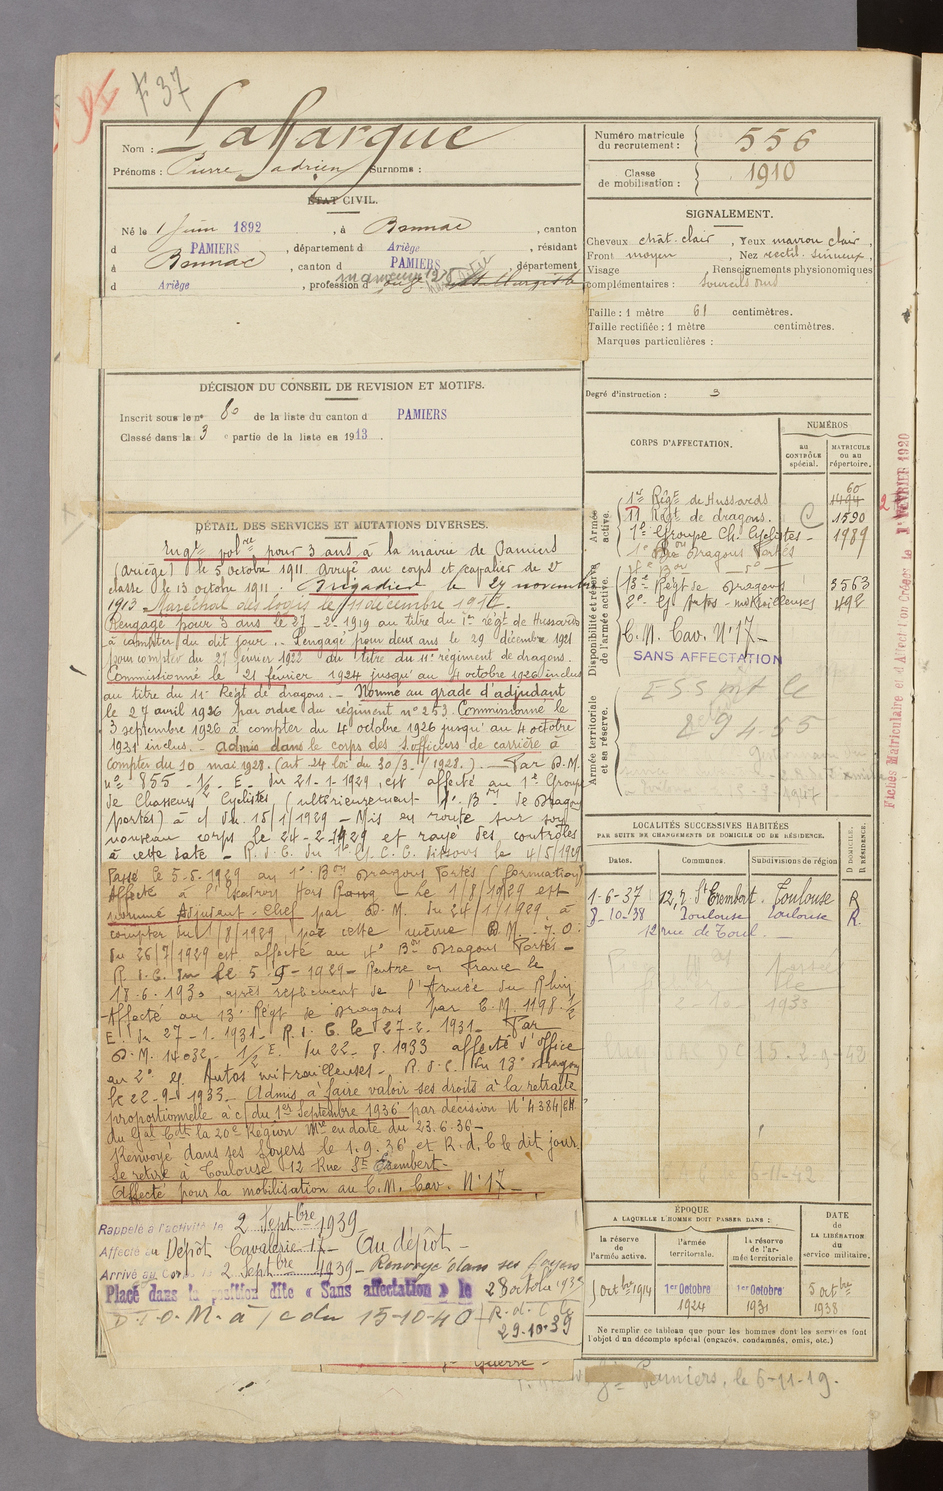 F 37
Nom : Laffargue
Prénoms : Pierre adrien Surnoms :
ÉTAT CIVIL.
Né le 1 Juin 1892, à Bonnac, canton
d PAMIERS, département d Ariège, résidant
à Bonnac, canton d PAMIERS, département
d Ariège, profession d
DÉCISION DU CONSEIL DE REVISION ET MOTIFS.
Inscrit sous le nº 60 de la liste du canton d PAMIERS
Classé dans la 3 e partie de la liste en 1913.
DÉTAIL DES SERVICES ET MUTATIONS DIVERSES.
Engé volre pour 3 ans à la mairie de Pamiers
(Ariège) le 5 octobre 1911 arrivé au corps et cavalier de 2e
classe le 13 octobre 1911. Brigadier le 27 novembre
1913 Maréchal des logis le 11 décembre 1914.
Rengagé pour 3 ans le 27-2-1919 au titre du 1er régt de Hussards
à compter du dit jour. Rengagé pour deux ans le 29 décembre 1921
pour compter du 27 février 1922 du titre du 11e régiment de dragons.
Commissionné le 21 février 1924 jusqu'au 4 octobre 1926 inclus
au titre du 11e Régt de dragons. - Nommé au grade d'adjudant
le 27 avril 1926 par ordre du régiment nº 253. Commissionné le
3 septembre 1926 à compter du 4 octobre 1926 jusqu'au 4 octobre
1931 inclus. - admis dans le corps des s.officiers de carrière à
compter du 10 mai 1928. (art. 24 loi du 30/3/1928.) - Par D.M.
nº 855 - 1/2 E. du 21-1-1929, est affecté au 1er Groupe
de Chasseurs Cyclistes (ultérieurement 1er Bon de Dragons
portés) à c/ du 15/1/1929 - Mis en route sur son
nouveau corps le 24-2-1929 et rayé des contrôles
à cette date - R.d.C. du 1er G.C.C. dissous le 4/5/1929
Passé le 5-5-1929 au 1er Bon Dragons Portés (formation)
Affecté à l'Escadron Hors Rang - Le 1/8/1929 est
nommé Adjudant-Chef par D.M. du 24/7/1929 à
compter du 1/8/1929 par cette même D.M. - J.O.
du 26/7/1929 est affecté au 4e Bon Dragons Portés -
R.d.C. du le 5-9-1929 - Rentre en France le
18.6.1930, après repliement de l'Armée du Rhin
Affecté au 13e Régt de Dragons par C.M. 1198 1/2
E. du 27-1-1931 - R.d.C. le 27-2-1931 - Par
D.M. 14032 - 1/2 E. du 22-8-1933 affecté d'office
au 2e G. Autos mitrailleuses - R.d.C. du 13e Dragons
le 22-9-1933 - Admis à faire valoir ses droits à la retraite
proportionnelle à c/ du 1er Septembre 1936 par décision Nº 4384/CH
du Gal Cdt la 20e Région Mre en date du 23.6.36 -
Renvoyé dans ses foyers le 1.9.36 et R.d.C le dit jour
Se retire à Toulouse 12 Rue St Exembert -
Affecté pour la mobilisation au C.M. Cav. Nº 17 -
Rappelé à l'activité le 2 Septbre 1939
Affecté au Dépôt Cavalerie 17 - Au dépôt -
Arrivé au Corps le 2 Septbre 1939 - Renvoyé dans ses foyers
Placé dans la position dite « Sans affectation » le 28 octobre 1939
D.T.O.M. à /c du 15-10-40 R.d.C. le
29-10-39
Guerre -
Pamiers, le 6-11-19.
Numéro matricule du recrutement : 556
Classe de mobilisation : 1910
SIGNALEMENT.
Cheveux chât. clair, Yeux marron clair,
Front moyen, Nez rectil. sinueux,
Visage Renseignements physionomiques
complémentaires :
Taille : 1 mètre 61 centimètres.
Taille rectifiée : 1 mètre centimètres.
Marques particulières :
Degré d'instruction : 3
CORPS D'AFFECTATION.
NUMÉROS
au CONTRÔLE spécial.
MATRICULE ou au répertoire.
Armée active.
1er Régt de Hussards 60 1494
11 Régt de dragons. C 1590
1er Groupe Ch. Cyclistes - 1989
1er Bon Dragons Portés
4e Bon -do-
Disponibilité et réserve de l'armée active.
13e Régt de Dragons 3563
2e G. Autos-mitrailleuses 492
C.M. Cav. Nº 17 -
SANS AFFECTATION
Armée territoriale et sa réserve.
29 4.55
Fiches Matriculaire et d'Affectation Créées le 1er FÉVRIER 1920
LOCALITÉS SUCCESSIVES HABITÉES
PAR SUITE DE CHANGEMENTS DE DOMICILE OU DE RÉSIDENCE.
Dates. Communes. Subdivisions de région D DOMICILE. R RÉSIDENCE.
1-6-37 12, r. St Exembert. Toulouse R
8-10-38 Toulouse Toulouse R.
12 rue de Toul. -
ÉPOQUE
A LAQUELLE L'HOMME DOIT PASSER DANS :
DATE de LA LIBÉRATION du service militaire.
la réserve de l'armée active.
l'armée territoriale.
la réserve de l'armée territoriale
1 octbre 1914
1er Octobre 1924
1er Octobre 1931
5 octbre 1938
Ne remplir ce tableau que pour les hommes dont les services font
l'objet d'un décompte spécial (engagés, condamnés, omis, etc.)